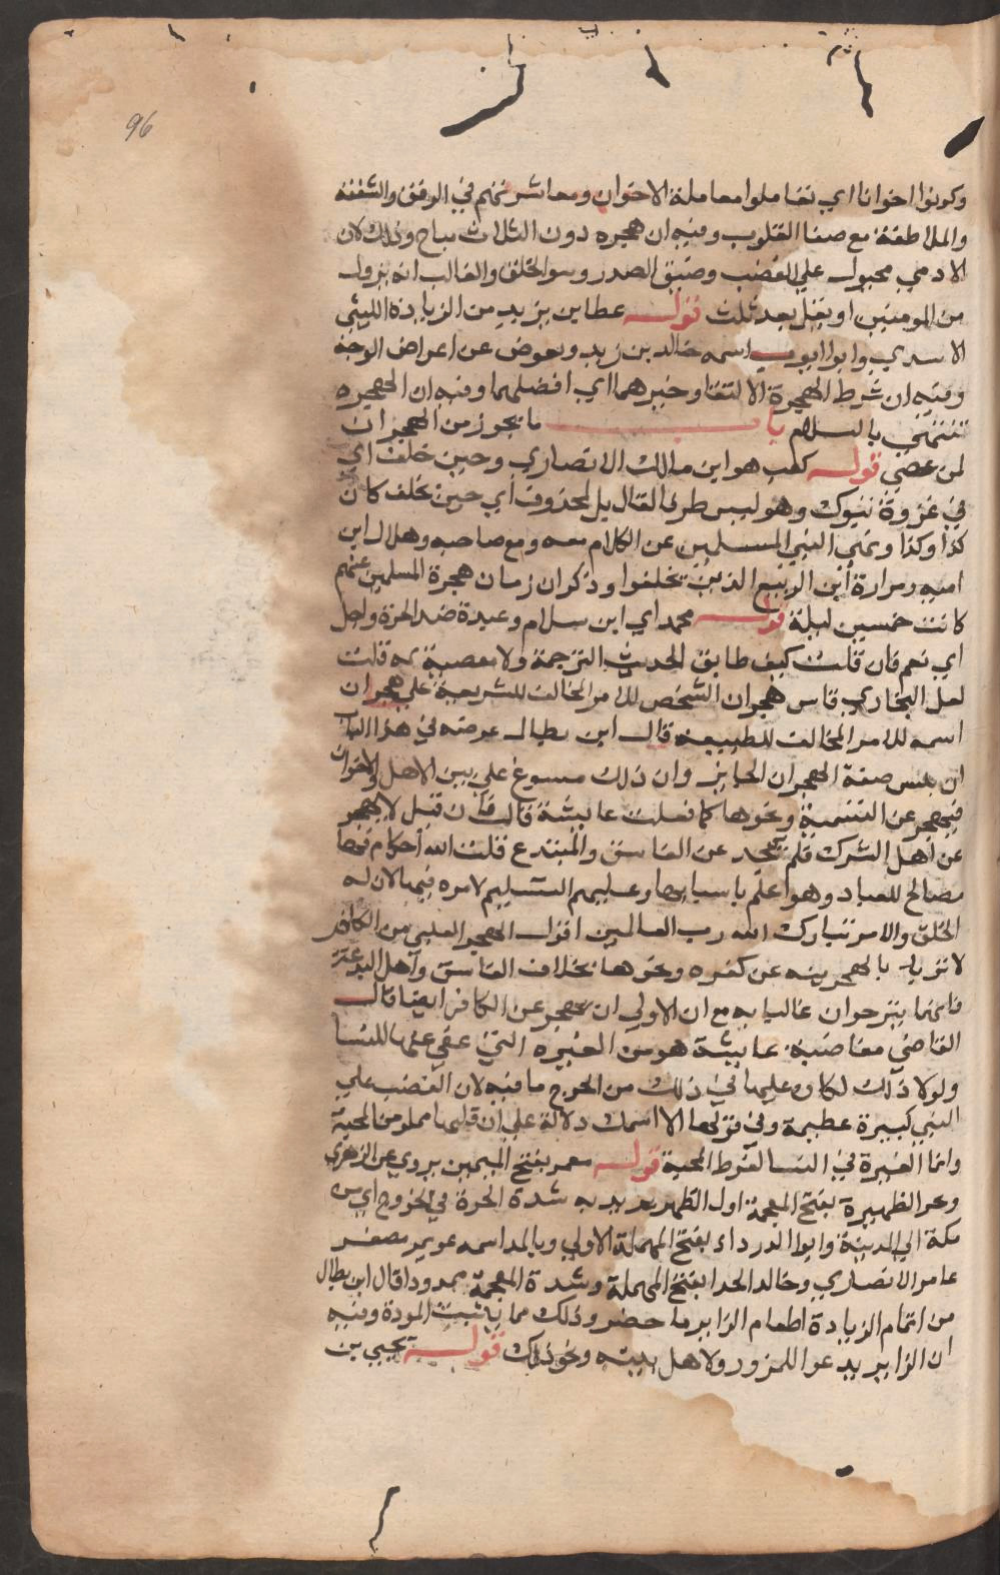 96
وكونوا اخوانا اي تعاملوا معاملة الاخوان ومعاشرتهم في الرفق والشفقة
والملاطفة مع صفا القلوب وفيه ان هجره دون الثلاث مباح وذلك لان
الادمي مجبول علي الغضب وضيق الصدر وسو الخلق والغالب انه يزول
من المومنين او يقل بعد ثلث قوله عطا بن يزيد من الزيادة الليثي
الاسدي وابوا ايوب اسمه خالد بن زيد ويعرض عن اعراض الوجه
وفيه ان شرط الهجرة الالتقا وخيرهما اي افضلهما وفيه ان الهجره
تنتهي بالسلام باب ما يجوز من الهجران
لمن عصي قوله كعب هو ابن مالك الانصاري وحين خلف اي
في غزوة تبوك وهو ليس طرفا لقال بل لمحذوف اي حين تخلف كان
كذا وكذا ونهي النبي المسلمين عن الكلام معه ومع صاحبه وهلال ابن
اميه ومرارة ابن الربيع الذين تخلفوا وذكر ان زمان هجرة المسلمين عنهم
كانت خمسين ليلة قوله محمد اي ابن سلام وعبدة ضد الحرة واجل
اي نعم فان قلت كيف طابق الحديث الترجمة ولا معصية ثمه قلت
لعل البخاري قاس هجران الشخص للامر المخالف للشريعة علي هجران
اسمه للامر المخالف للطبيعه قال ابن بطال غرضه في هذا الباب
ان يبين صفة الهجران الجايز وان ذلك مسوغ علي بين الاهل والاخوان
فيهجر عن التسمية ونحوها كما فعلت عايشة قالت فان قيل لا يهجر
عن اهل الشرك فلم يهجر عن الفاسق والمبتدع قلت لله احكام فيها
مصالح للعباد وهو اعلم باسبابها وعليهم التسليم لامره فيها لان له
الخلق والامر تبارك الله رب العالمين اقول الهجر القلبي من الكافر
لا تزيل بالهجر ينه عن كفره ونحوها بخلاف الفاسق واهل البدعة
فانهما ينزجران غالبا به مع ان الاولي ان يهجر عن الكافر ايضا قال
القاضي مغاضبة عايشة هو من الغيره التي عفي عنها للنسا
ولولا ذلك لكان عليها في ذلك من الحرج ما فيه لان الغضب علي
النبي كبيرة عظيمة وفي قولها الا اسمك دلالة علي ان قلبها مملو من المحبة
وانما الغيرة في النسا لفرط المحبة قوله معمر بفتح الميمين يروي عن الزهري
وحر الظهيرة بفتح المعجمة اول الظهر يريد به شدة الحرة في الخروج اي من
مكة الي المدينة وابوا الدرداء بفتح المهملة الاولي وبالمد اسمه عويمر مصغر
عامر الانصاري وخالد الحدا بفتح المهملة وشدة المعجمة ممدودا قال ابن بطال
من اتمام الزيادة اطعام الزاير ما حضر وذلك مما يثبت المودة وفيه
ان الزاير يدعوا للمزور ولاهل بيته ونحو ذلك قوله يحيي بن